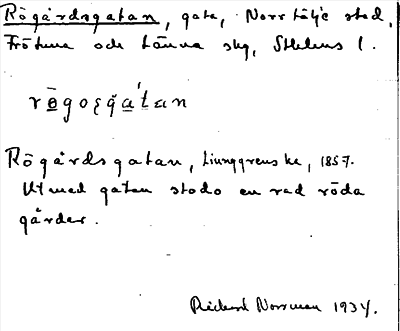 Rögårdsgatan, gata, Norrtälje stad,
Frötuna och Länna skg, Sthlms l.
Rögårdsgatan, Ljunggrens ke, 1857.
Utmed gatan stodo en rad röda
gårdar.
Rickard Norrman 1934.